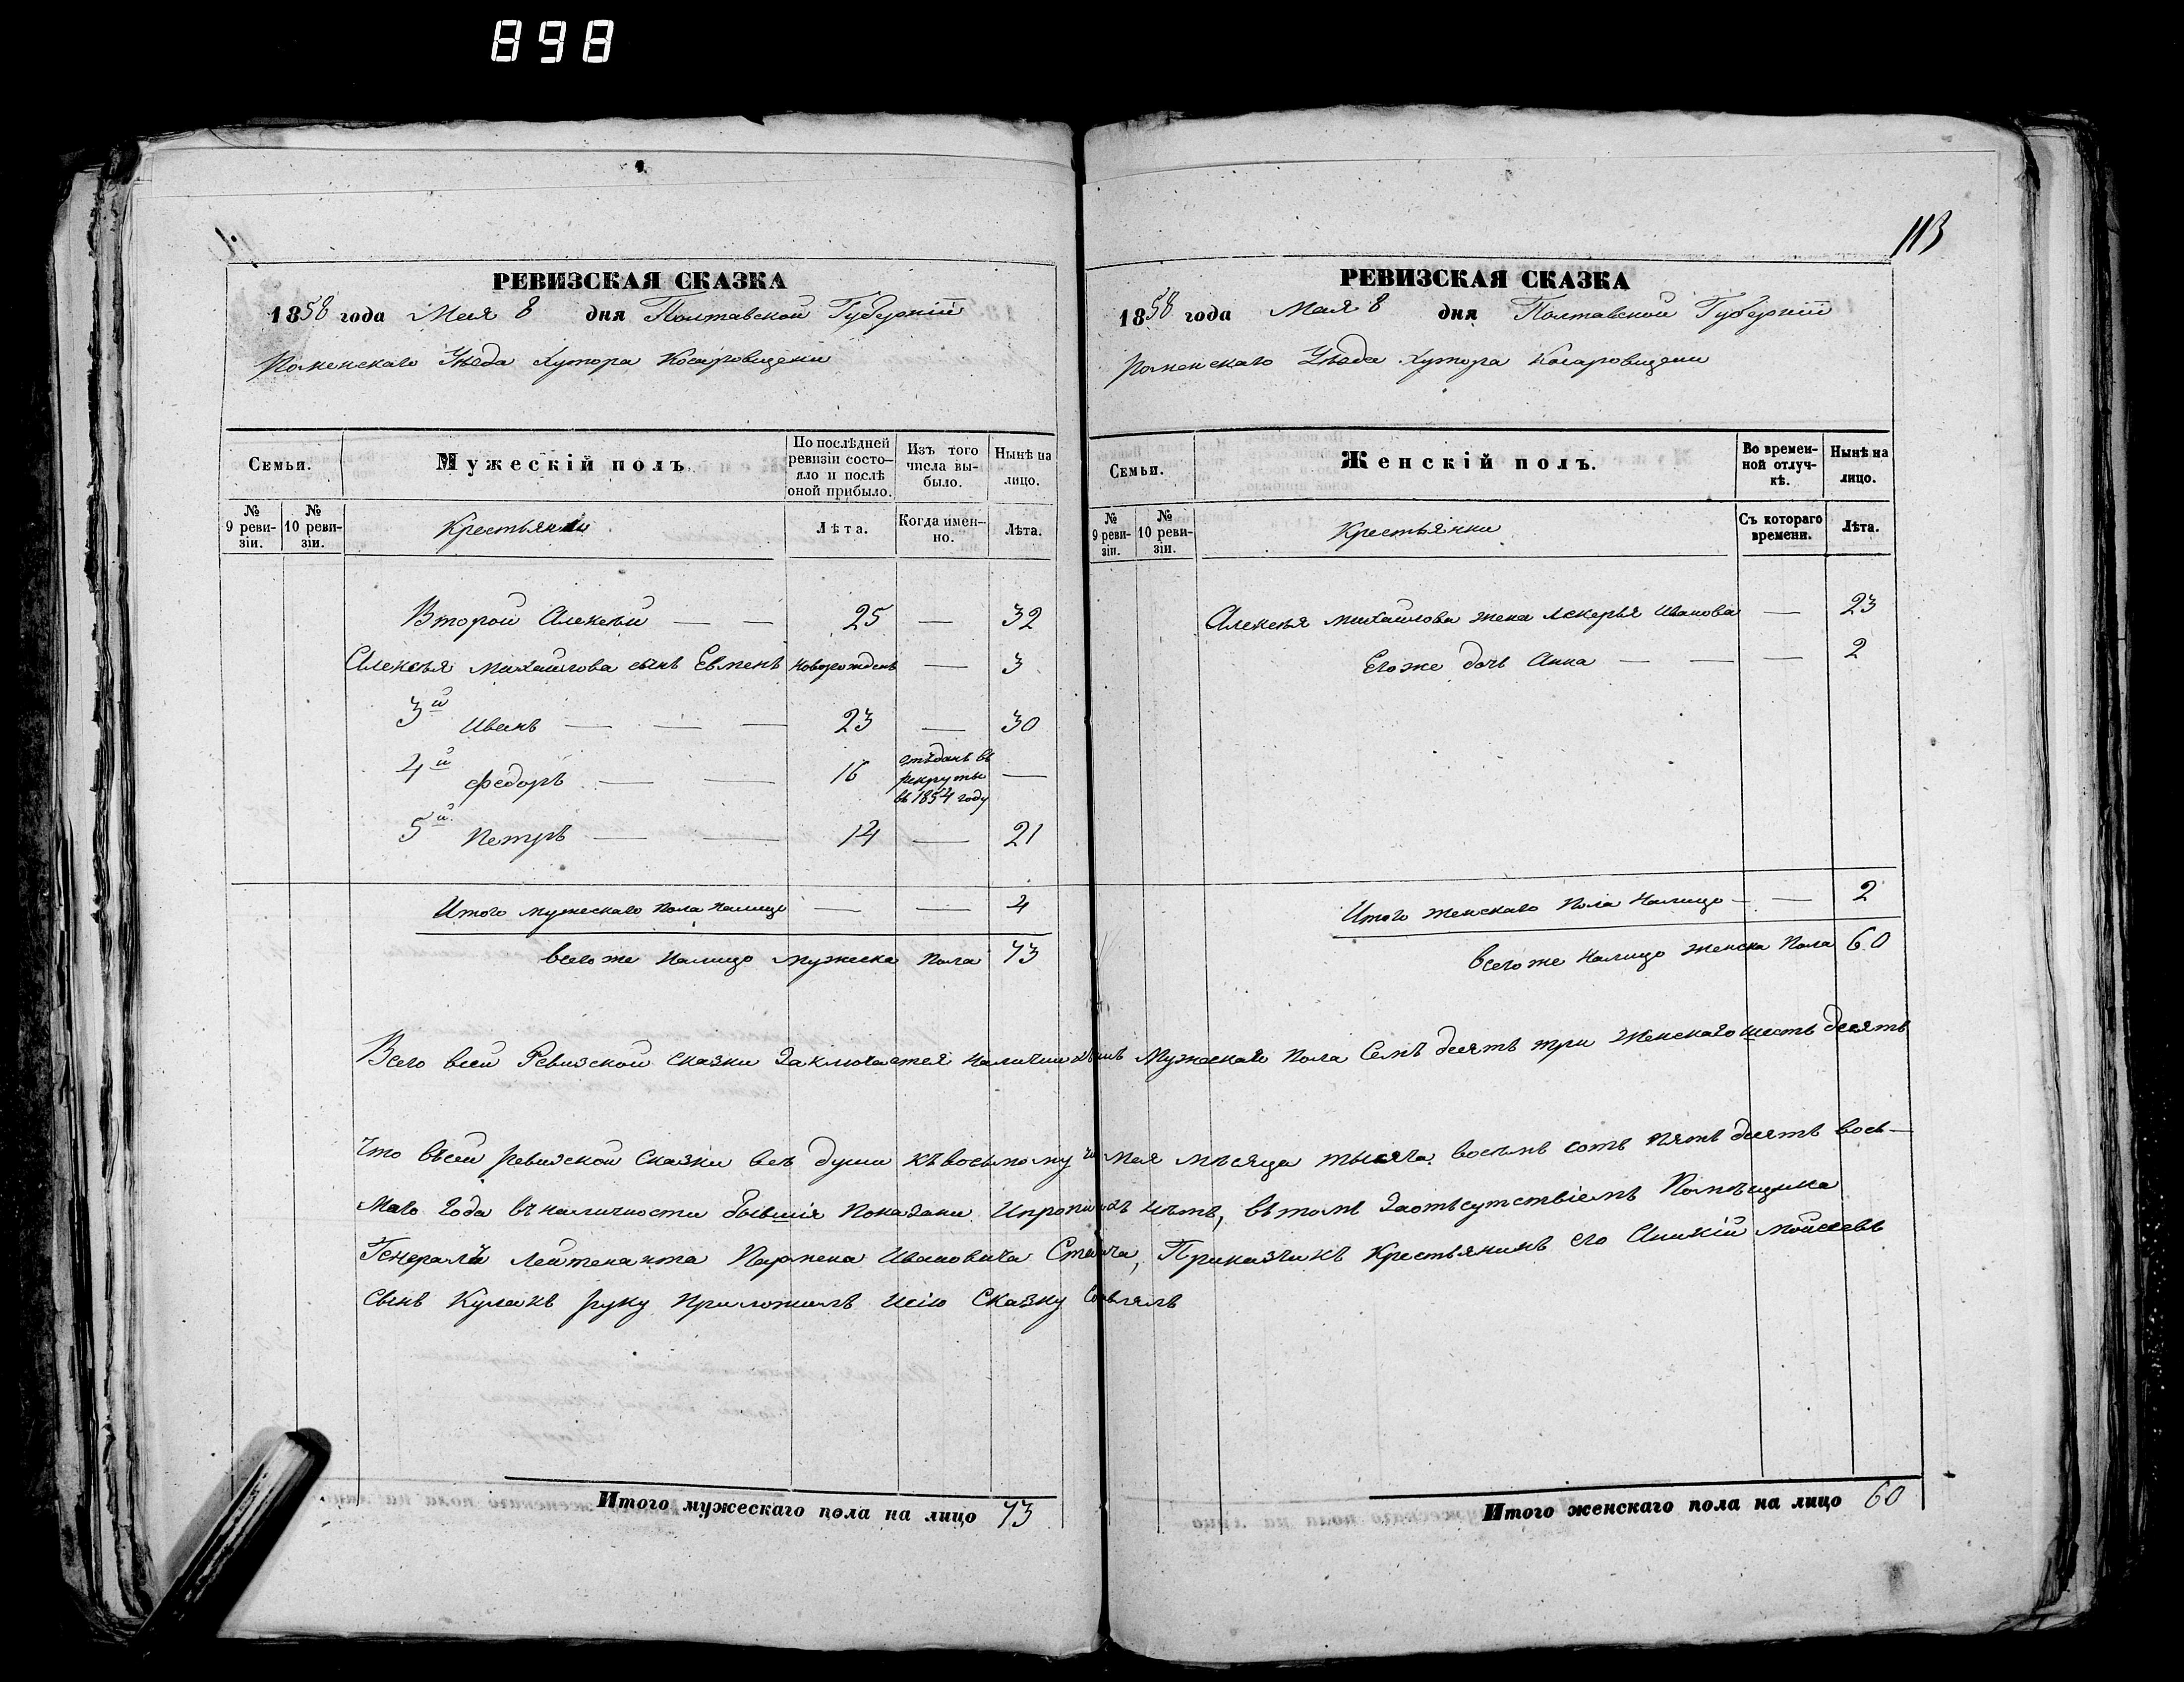 898
113
РЕВИЗСКАЯ СКАЗКА
1858 года Мая 8 дня Полтавской Губерніи
Роменскаго Уѣзда Хутора Косаровщени
Семьи. Мужескій полъ По послѣдней ревизіи состояло и послѣ оной прибыло. Изъ того числа выбыло. Нынѣ на лицо.
№ 9 ревизіи. № 10 ревизіи. Крестьяни Лѣта. Когда именно. Лѣта.
Второй Алексѣй — — 25 — 32
Алексѣя Михайлова сынъ Евменъ новорожденъ — 3
3й Иванъ — — — 23 — 30
4й Федоръ — — 16 отъданъ въ рекруты въ 1854 году —
5й Петръ — — 14 — 21
Итого мужескаго пола налицо — — 4
всего же налицо мужеска пола 73
РЕВИЗСКАЯ СКАЗКА
1858 года Мая 8 дня Полтавской Губерніи
Роменскаго Уѣзда Хутора Косаровщени
Семьи. Женскій полъ. Во временной отлучкѣ. Нынѣ на лицо.
№ 9 ревизіи. № 10 ревизіи. Крестьянки Съ котораго времени. Лѣта.
Алексѣя Михайлова жена Лскерья Иванова — 23
Его же дочь Анна — — — 2
Итого женскаго пола налицо — — 2
всего же налицо женска пола 60
Всего всей Ревизской сказки заключается налични душъ Мужескаго пола семъ десятъ три женскаго шесть десятъ
Что въсей ревизской сказки всѣ души къ восьмому мая мѣсяца тысяча восемь сотъ пять десятъ вось—
маго года въ наличности бывшія показани и пропи нѣтъ, въ томъ за отъсутствіемъ Помѣщика
Генералъ Лейтенанта Пармена Ивановича приказчикъ крестьянинъ его Аникій Мойсеевъ
сынъ Кулакъ руку приложилъ и сію сказку
Итого мужескаго пола на лицо 73
Итого женскаго пола на лицо 60